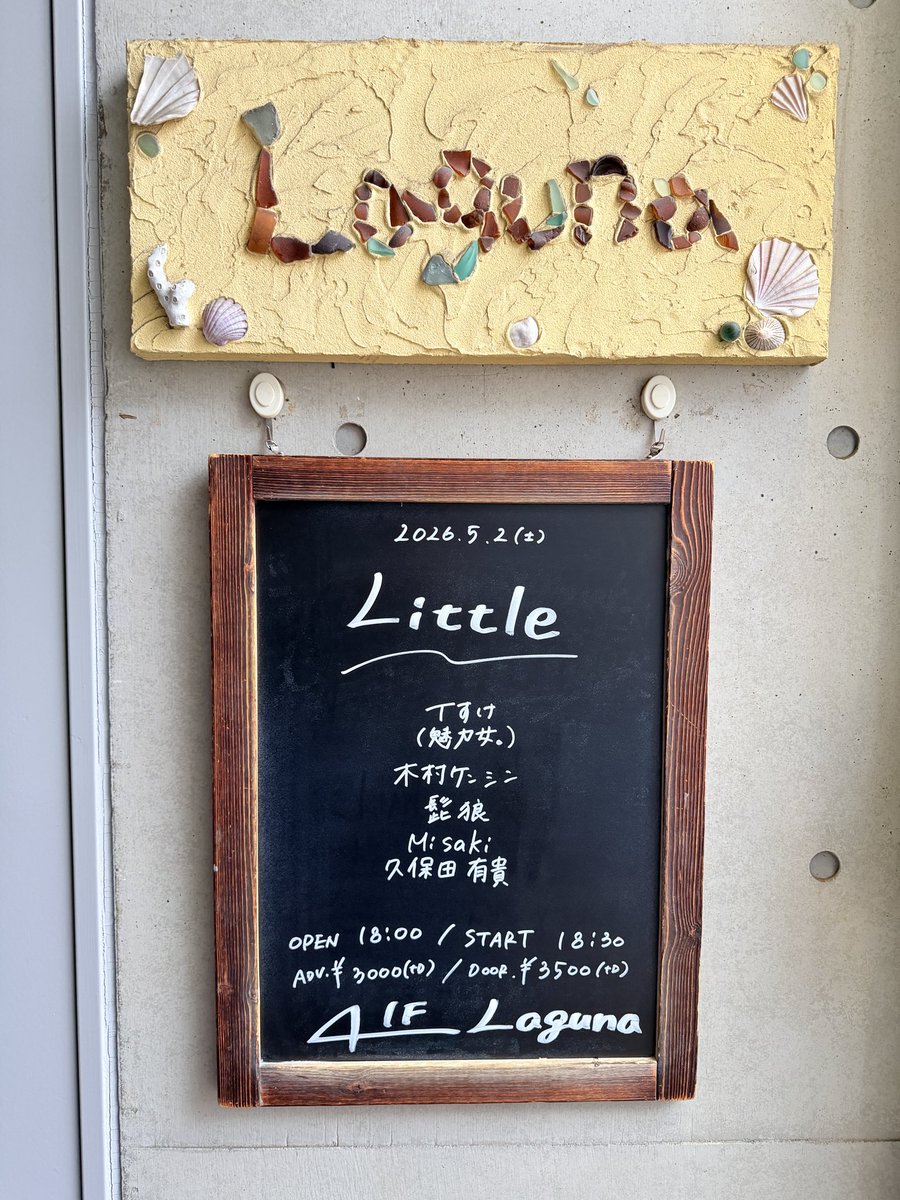 Laguna
2026.5.2(土)
Little
Tすけ
(魅力女。)
木村ケンシン
髭狼
Misaki
久保田 有貴
OPEN 18:00 / START 18:30
ADV.¥3000(+D) / DOOR.¥3500(+D)
1F Laguna